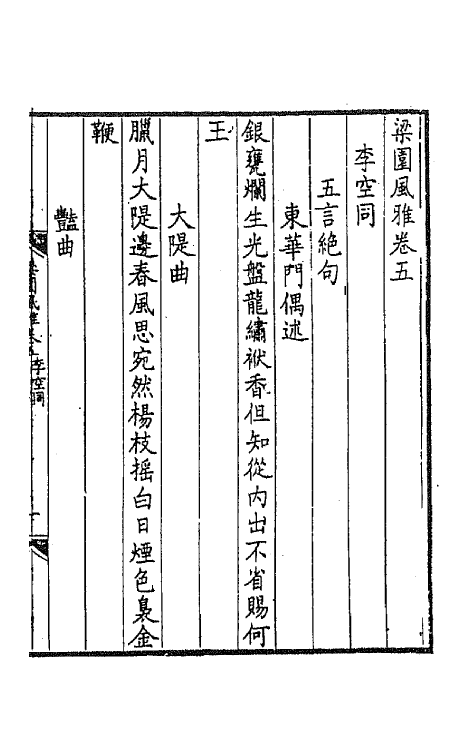 梁園風雅卷五
李空同
五言絕句
東華門偶述
銀甕爛生光盤龍繡袱香但知從内出不省賜何
王
大隄曲
臘月大隄邊春風思宛然楊枝摇白日煙色裊金
鞭
豔曲
梁園風雅卷五李空同
一